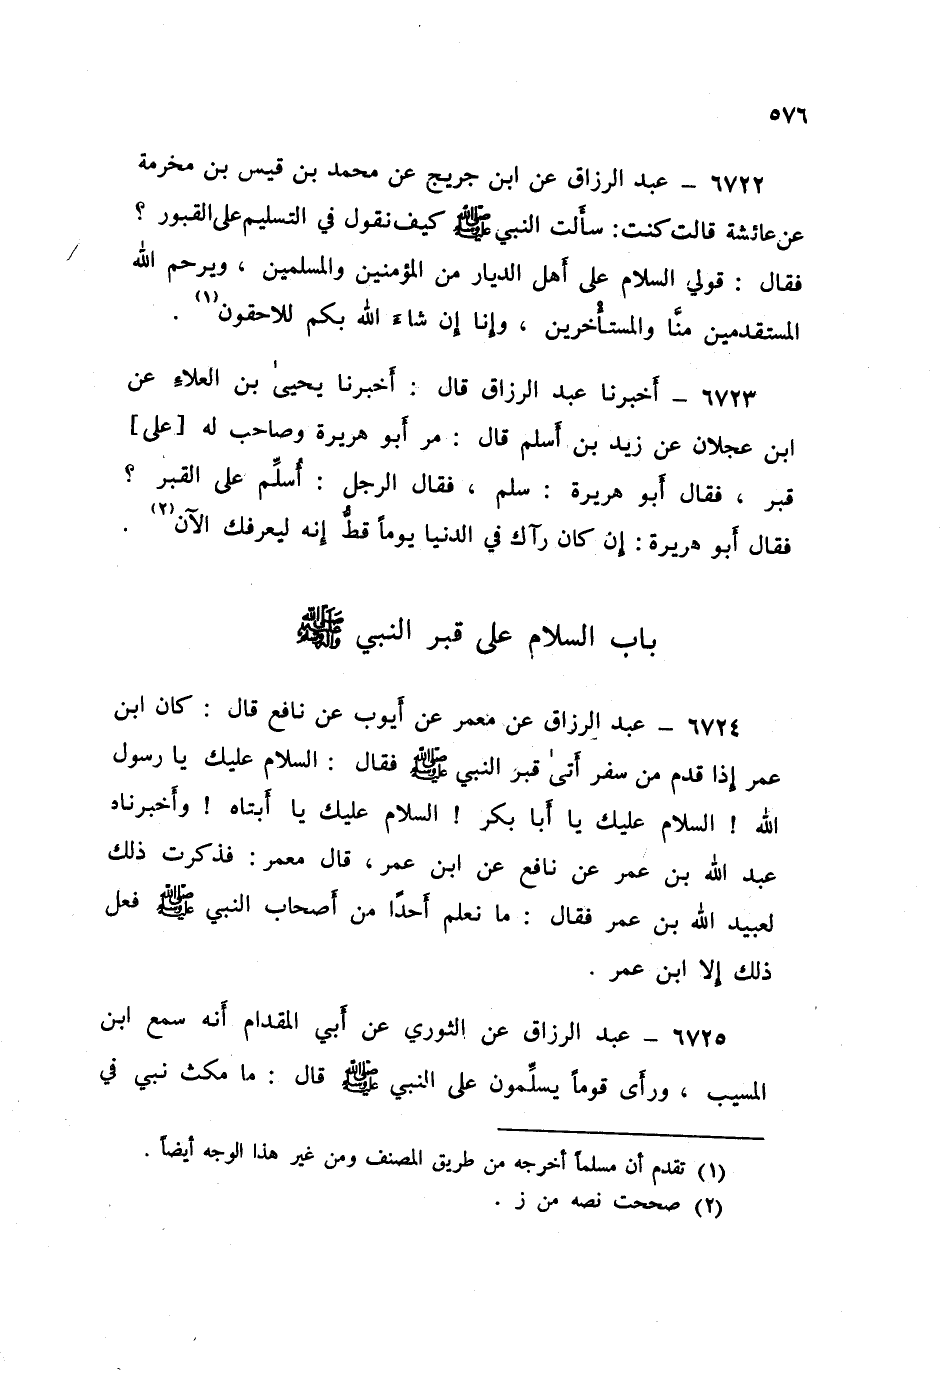 ٥٧٦
٦٧٢٢ – عبد الرزاق عن ابن جريج عن محمد بن قيس بن مخرمة
عن عائشة قالت كنت: سأَلت النبي ﷺ كيف نقول في التسليم على القبور ؟
فقال : قولي السلام على أَهل الديار من المؤمنين والمسلمين ، ويرحم الله
المستقدمين منَّا والمستأْخرين ، وإنا إن شاءَ الله بكم للاحقون(١) .
٦٧٢٣ – أَخبرنا عبد الرزاق قال : أَخبرنا يحيىٰ بن العلاءِ عن
ابن عجلان عن زيد بن أَسلم قال : مر أَبو هريرة وصاحب له [على]
قبر ، فقال أَبو هريرة : سلم ، فقال الرجل : أُسلِّم على القبر ؟
فقال أَبو هريرة : إن كان رآك في الدنيا يوماً قطُّ إنه ليعرفك الآن(٢) .
باب السلام على قبر النبي ﷺ
٦٧٢٤ – عبد الرزاق عن معمر عن أَيوب عن نافع قال : كان ابن
عمر إذا قدم من سفر أَتىٰ قبر النبي ﷺ فقال : السلام عليك يا رسول
الله ! السلام عليك يا أَبا بكر ! السلام عليك يا أَبتاه ! وأَخبرناه
عبد الله بن عمر عن نافع عن ابن عمر ، قال معمر : فذكرت ذلك
لعبيد الله بن عمر فقال : ما نعلم أَحدًا من أَصحاب النبي ﷺ فعل
ذلك إلا ابن عمر .
٦٧٢٥ – عبد الرزاق عن الثوري عن أَبي المقدام أَنه سمع ابن
المسيب ، ورأَى قوماً يسلِّمون على النبي ﷺ قال : ما مكث نبي في
(١) تقدم أن مسلماً أخرجه من طريق المصنف ومن غير هذا الوجه أيضاً .
(٢) صححت نصه من ز .